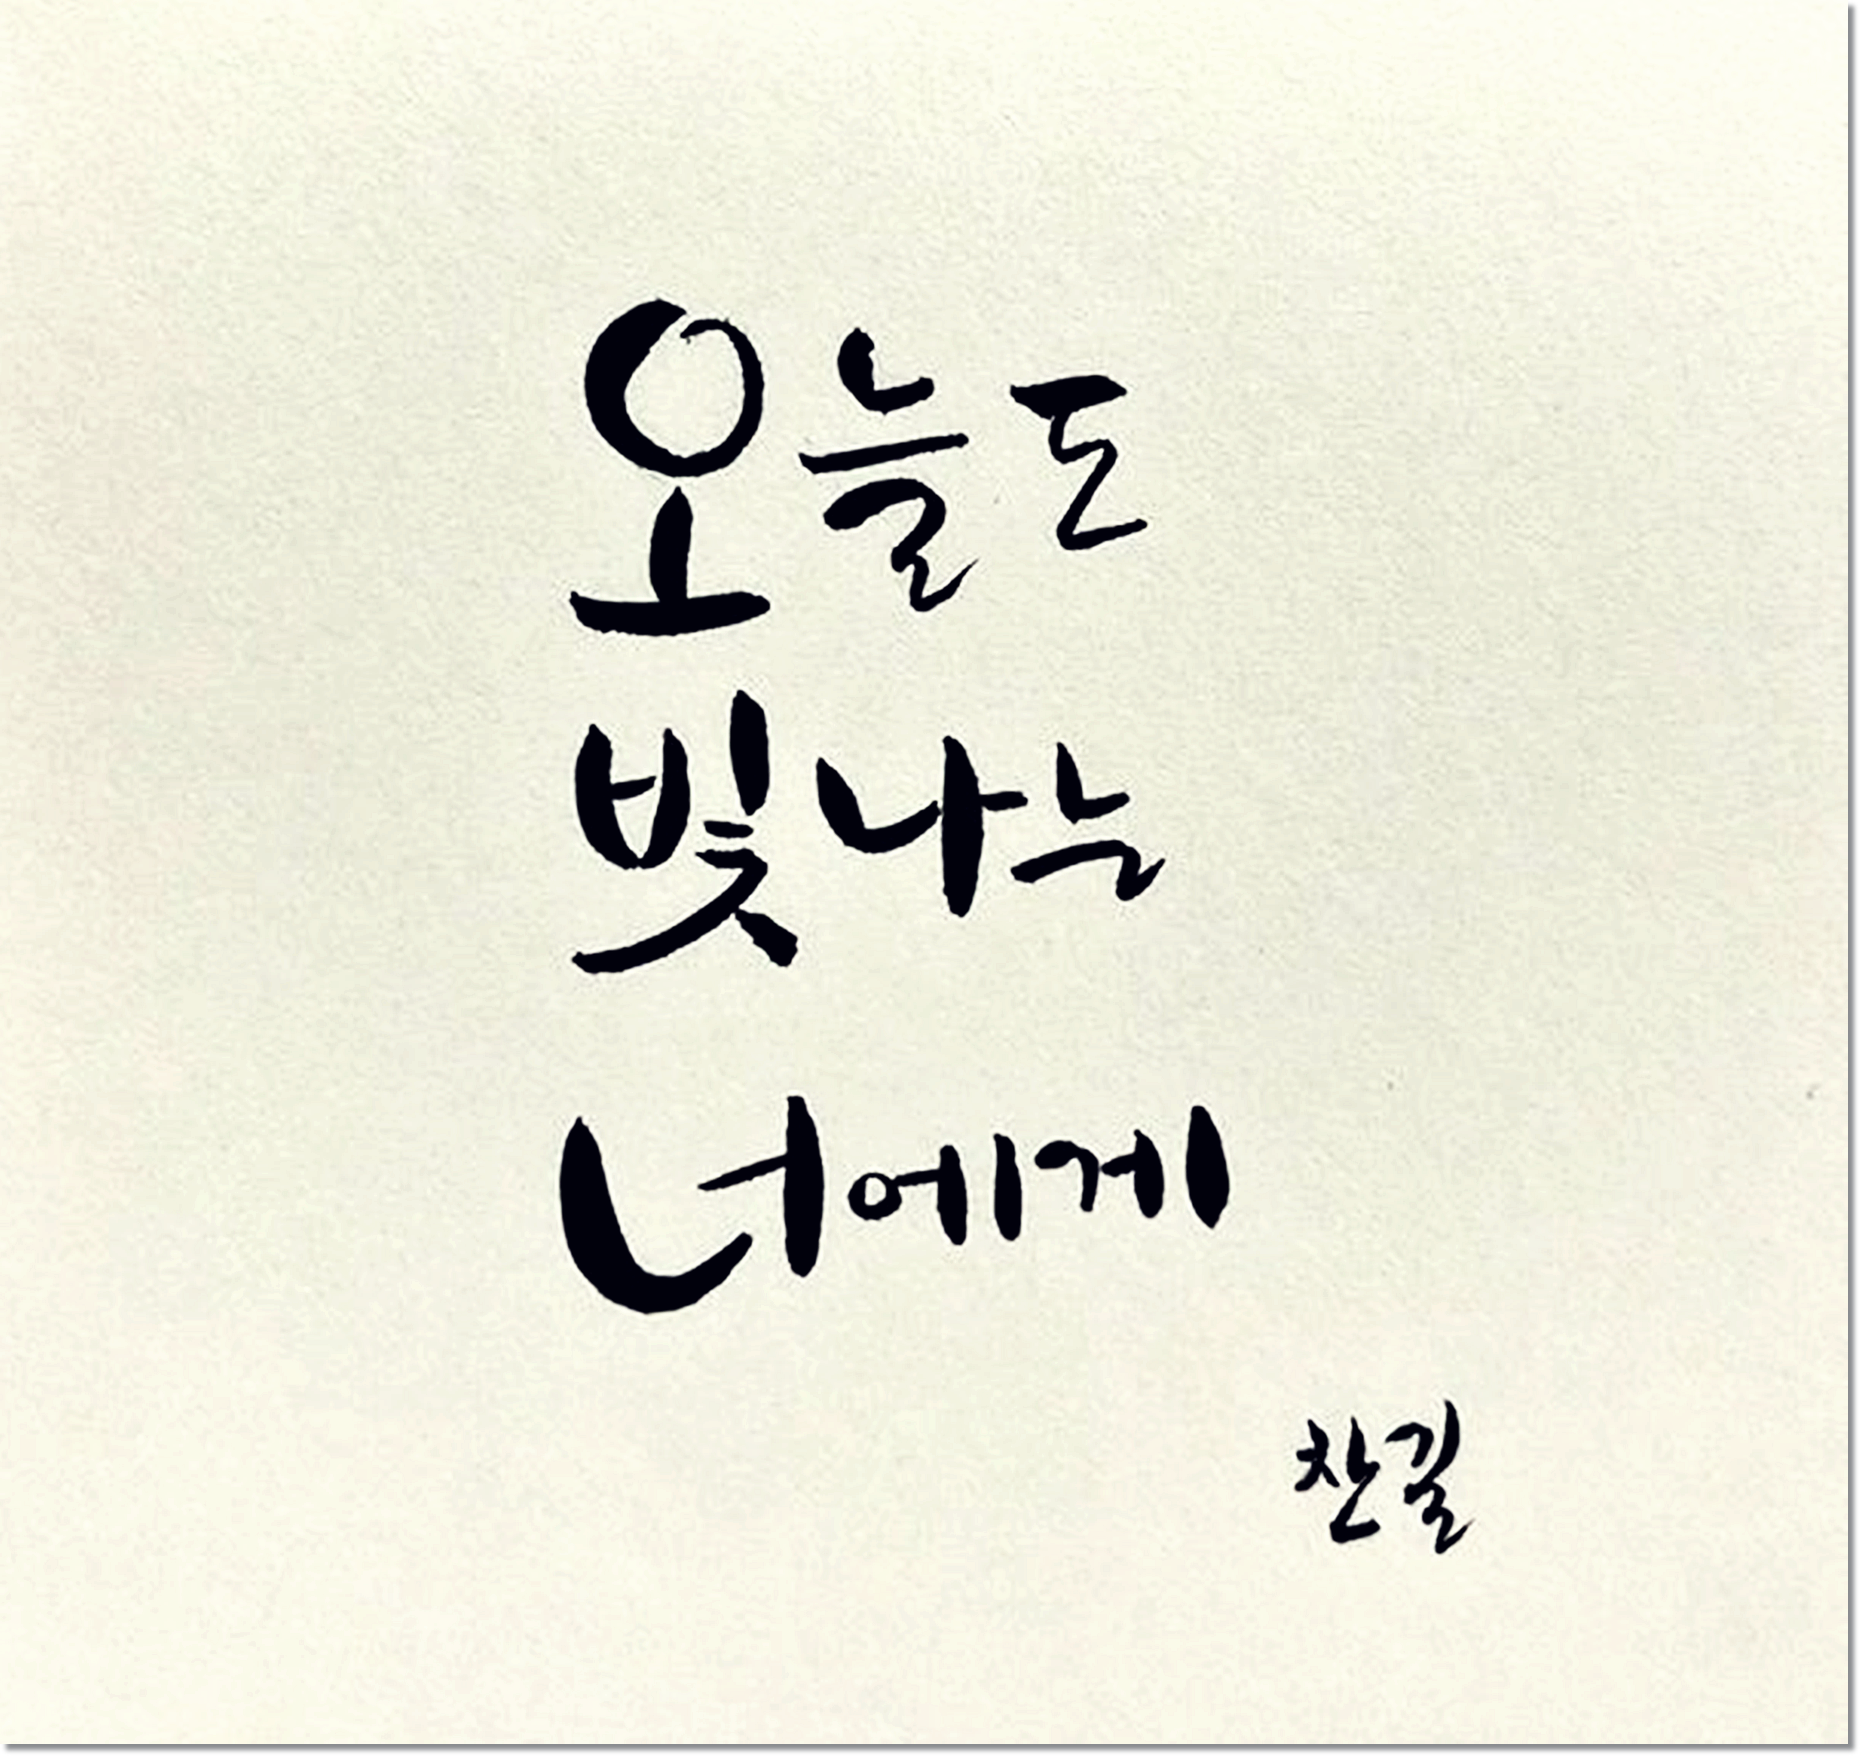 오늘도
빛나는
너에게
찬길